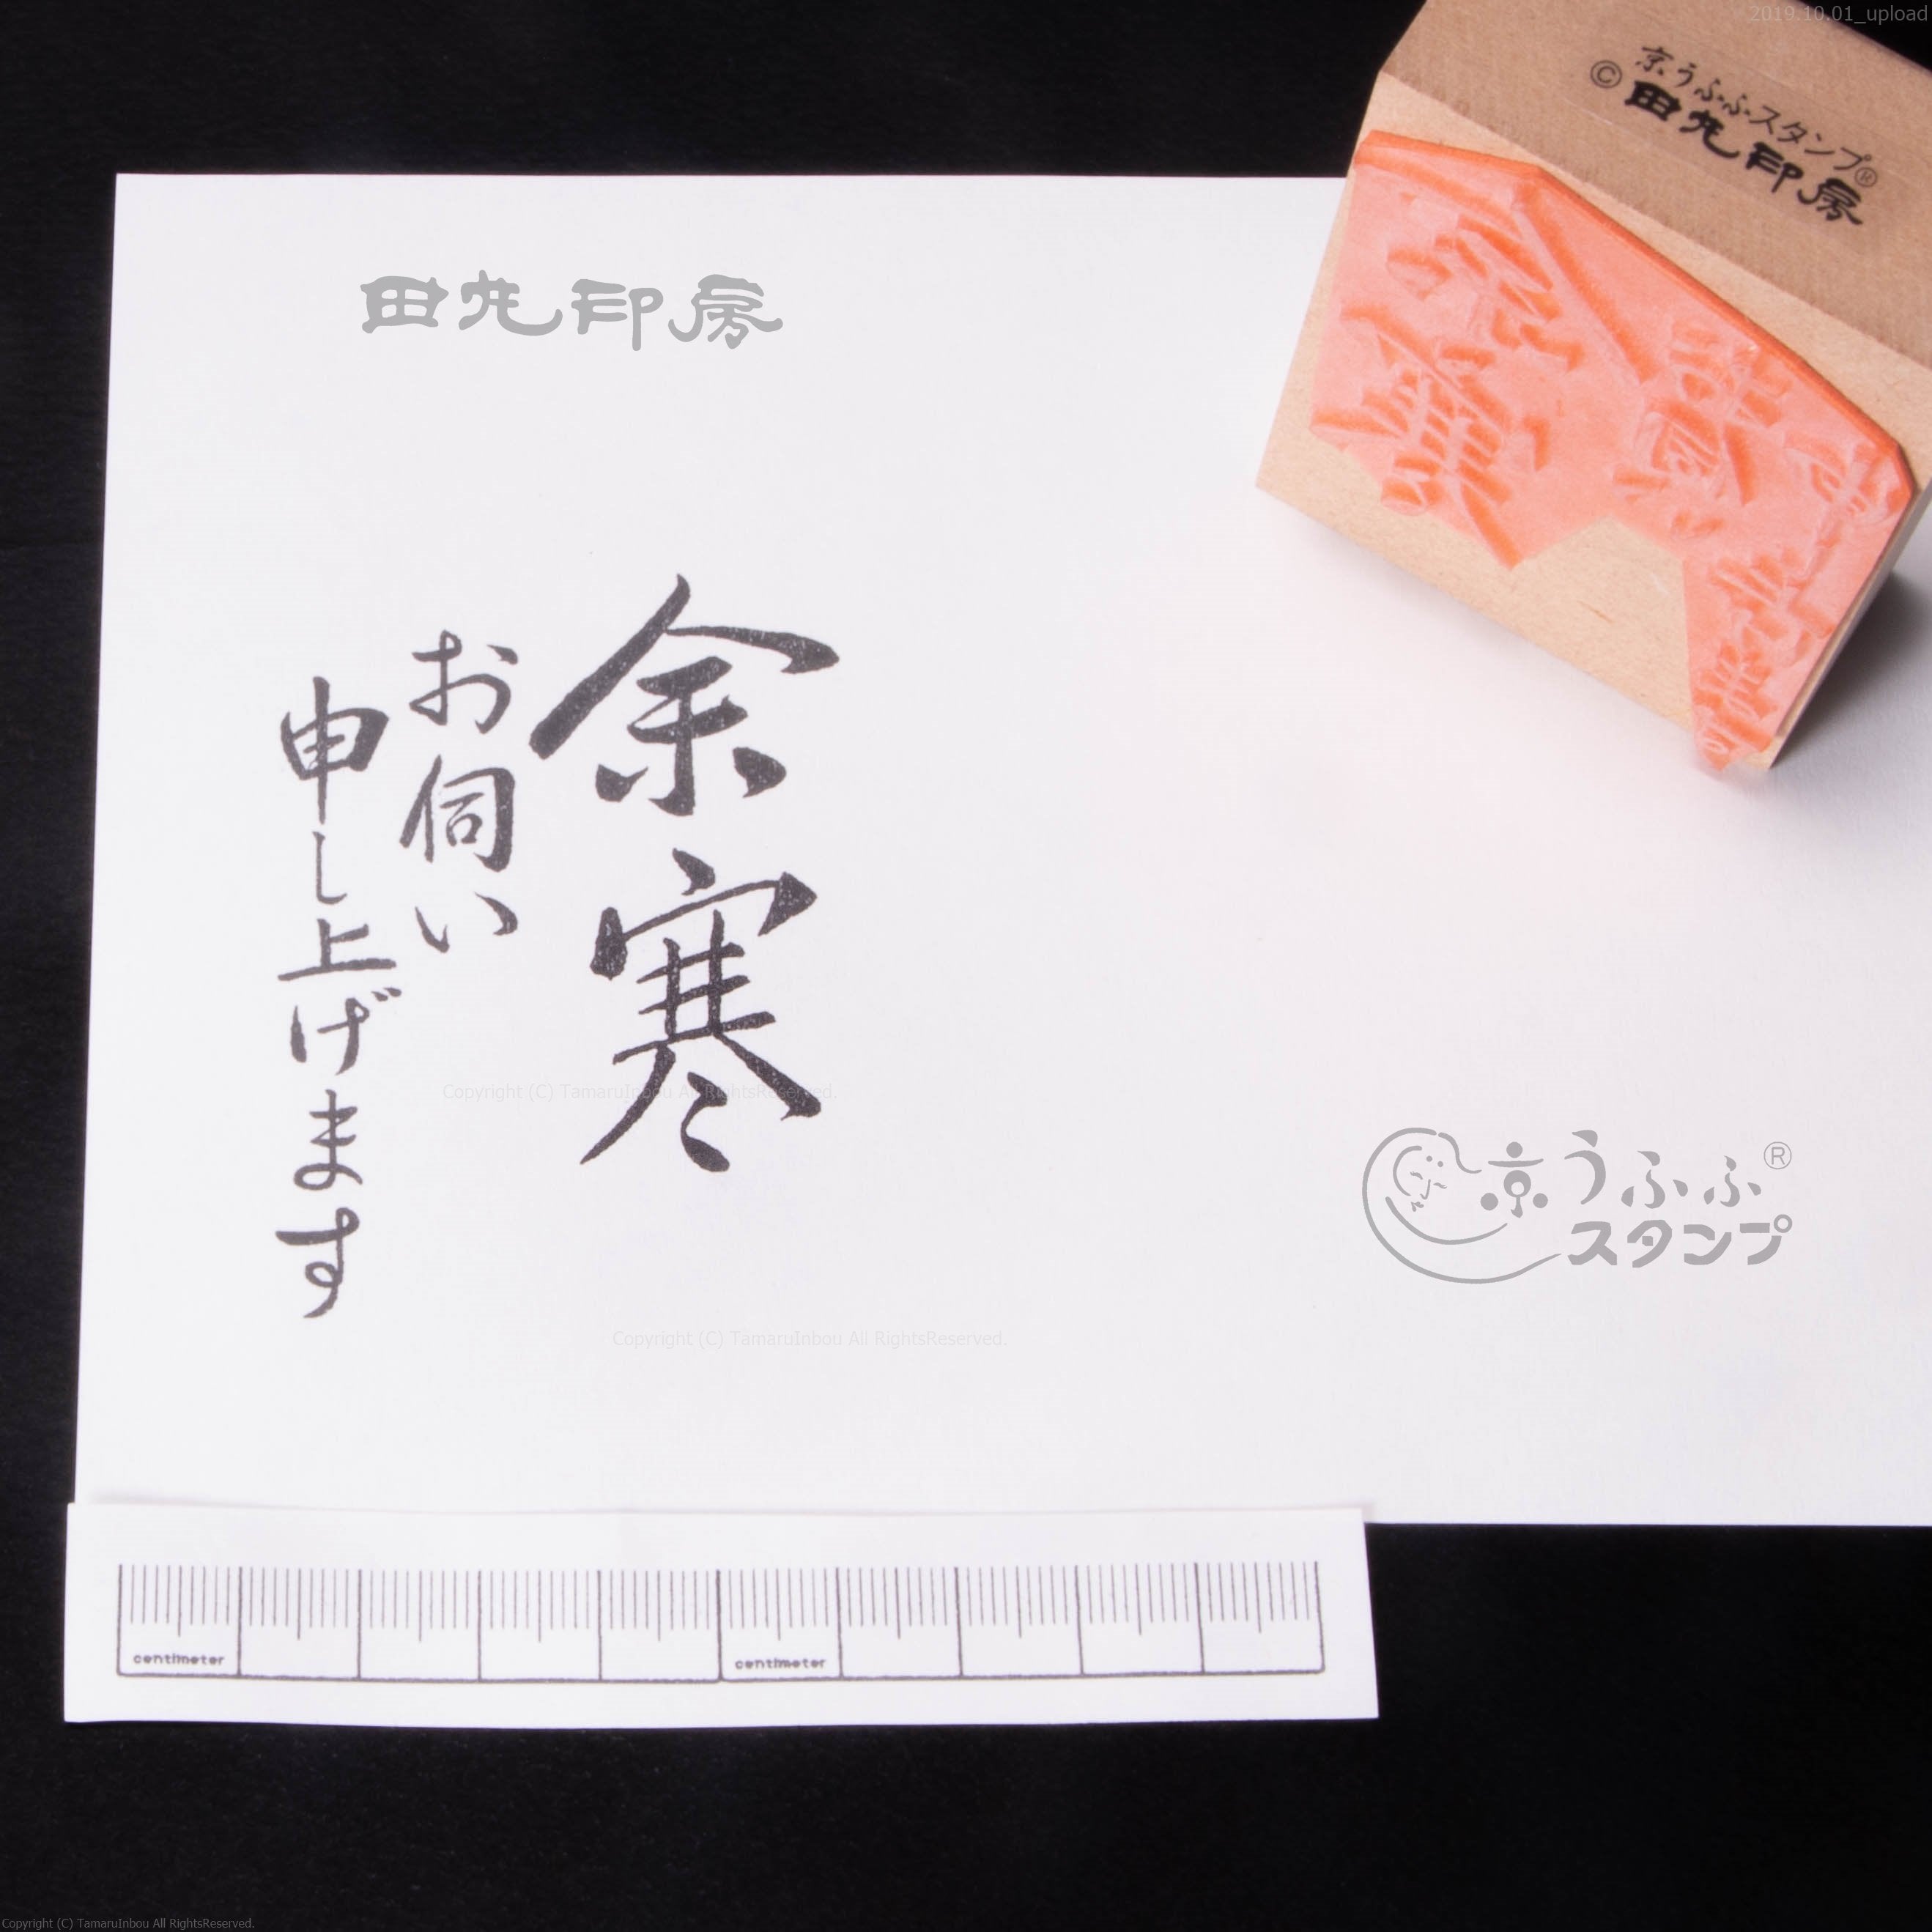 2019.10.01_upload
京うふふスタンプ®
© 田丸印房
田丸印房
余寒
お伺い
申し上げます
Copyright (C) TamaruInbou All RightsReserved.
京うふふ®
スタンプ
Copyright (C) TamaruInbou All RightsReserved.
centimeter
centimeter
Copyright (C) TamaruInbou All RightsReserved.